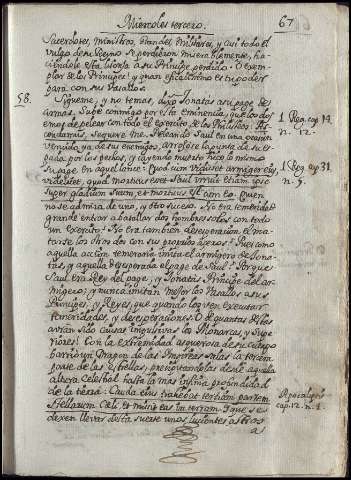 Miercoles tercero.
67
Sacerdotes, ministros, Grandes, Militares, y casi todo el
vulgo de su Reyno se perdieron miserablemente, ha-
ciendole esta lisonja a su Principe perdido. O exem-
plar de los Principes! y quan eficacissimo es tu poder
para con sus Vasallos.
58.
Sigueme, y no temas, dixo Jonatas a su page de
armas, Sube conmigo por esta eminencia, que los dos
emos de pelear con todo el exercito de los Philisteos: As-
cendamus, sequere me. Peleando Saul en una ocasion
1 Reg. cap. 14.
n. 12.
vencido ya de sus enemigos, arrojose la punta de su es-
pada por los pechos, y cayendo muerto hizo lo mismo
su page en aquel lance: Quod cum vidisset armiger eius,
1 Reg. cap 31.
n. 5.
videlicet, quod mortuus esset Saul, irruit etiam ipse
super gladium suum, et mortuus est cum eo. Quien
no se admira de uno, y otro suceso. No era temeridad
grande entrar a batallar dos hombres solos con todo
un exercito? No era tambien desesperacion el ma-
tarse los otros dos con sus propios azeros? Pues como
aquella accion temeraria imita el armigero de Jona-
tas, y aquella desesperada el page de Saul? Porque
Saul era Rey del page, y Jonatas Principe del ar-
migero; y nunca imitan mejor los Vasallos a sus
Principes, y Reyes, que quando los ven executar
temeridades, y desesperaciones. O de quantas destas
avran sido causas impulsivas los Monarcas, y Supe-
riores! Con la extremidad asquerosa de su cuerpo
barrio un Dragon de las Impireas salas la tercera
parte de las estrellas, precipitandolas desde aquella
altura Celestial hasta la mas infima profundidad
de la tierra: Cauda eius trahebat tertiam partem
Apocalipsis
cap. 12. n. 4.
Stellarum Cæli, et misit eas in terram. Y que se
dexen llevar desta suerte unos lucientes astros
a